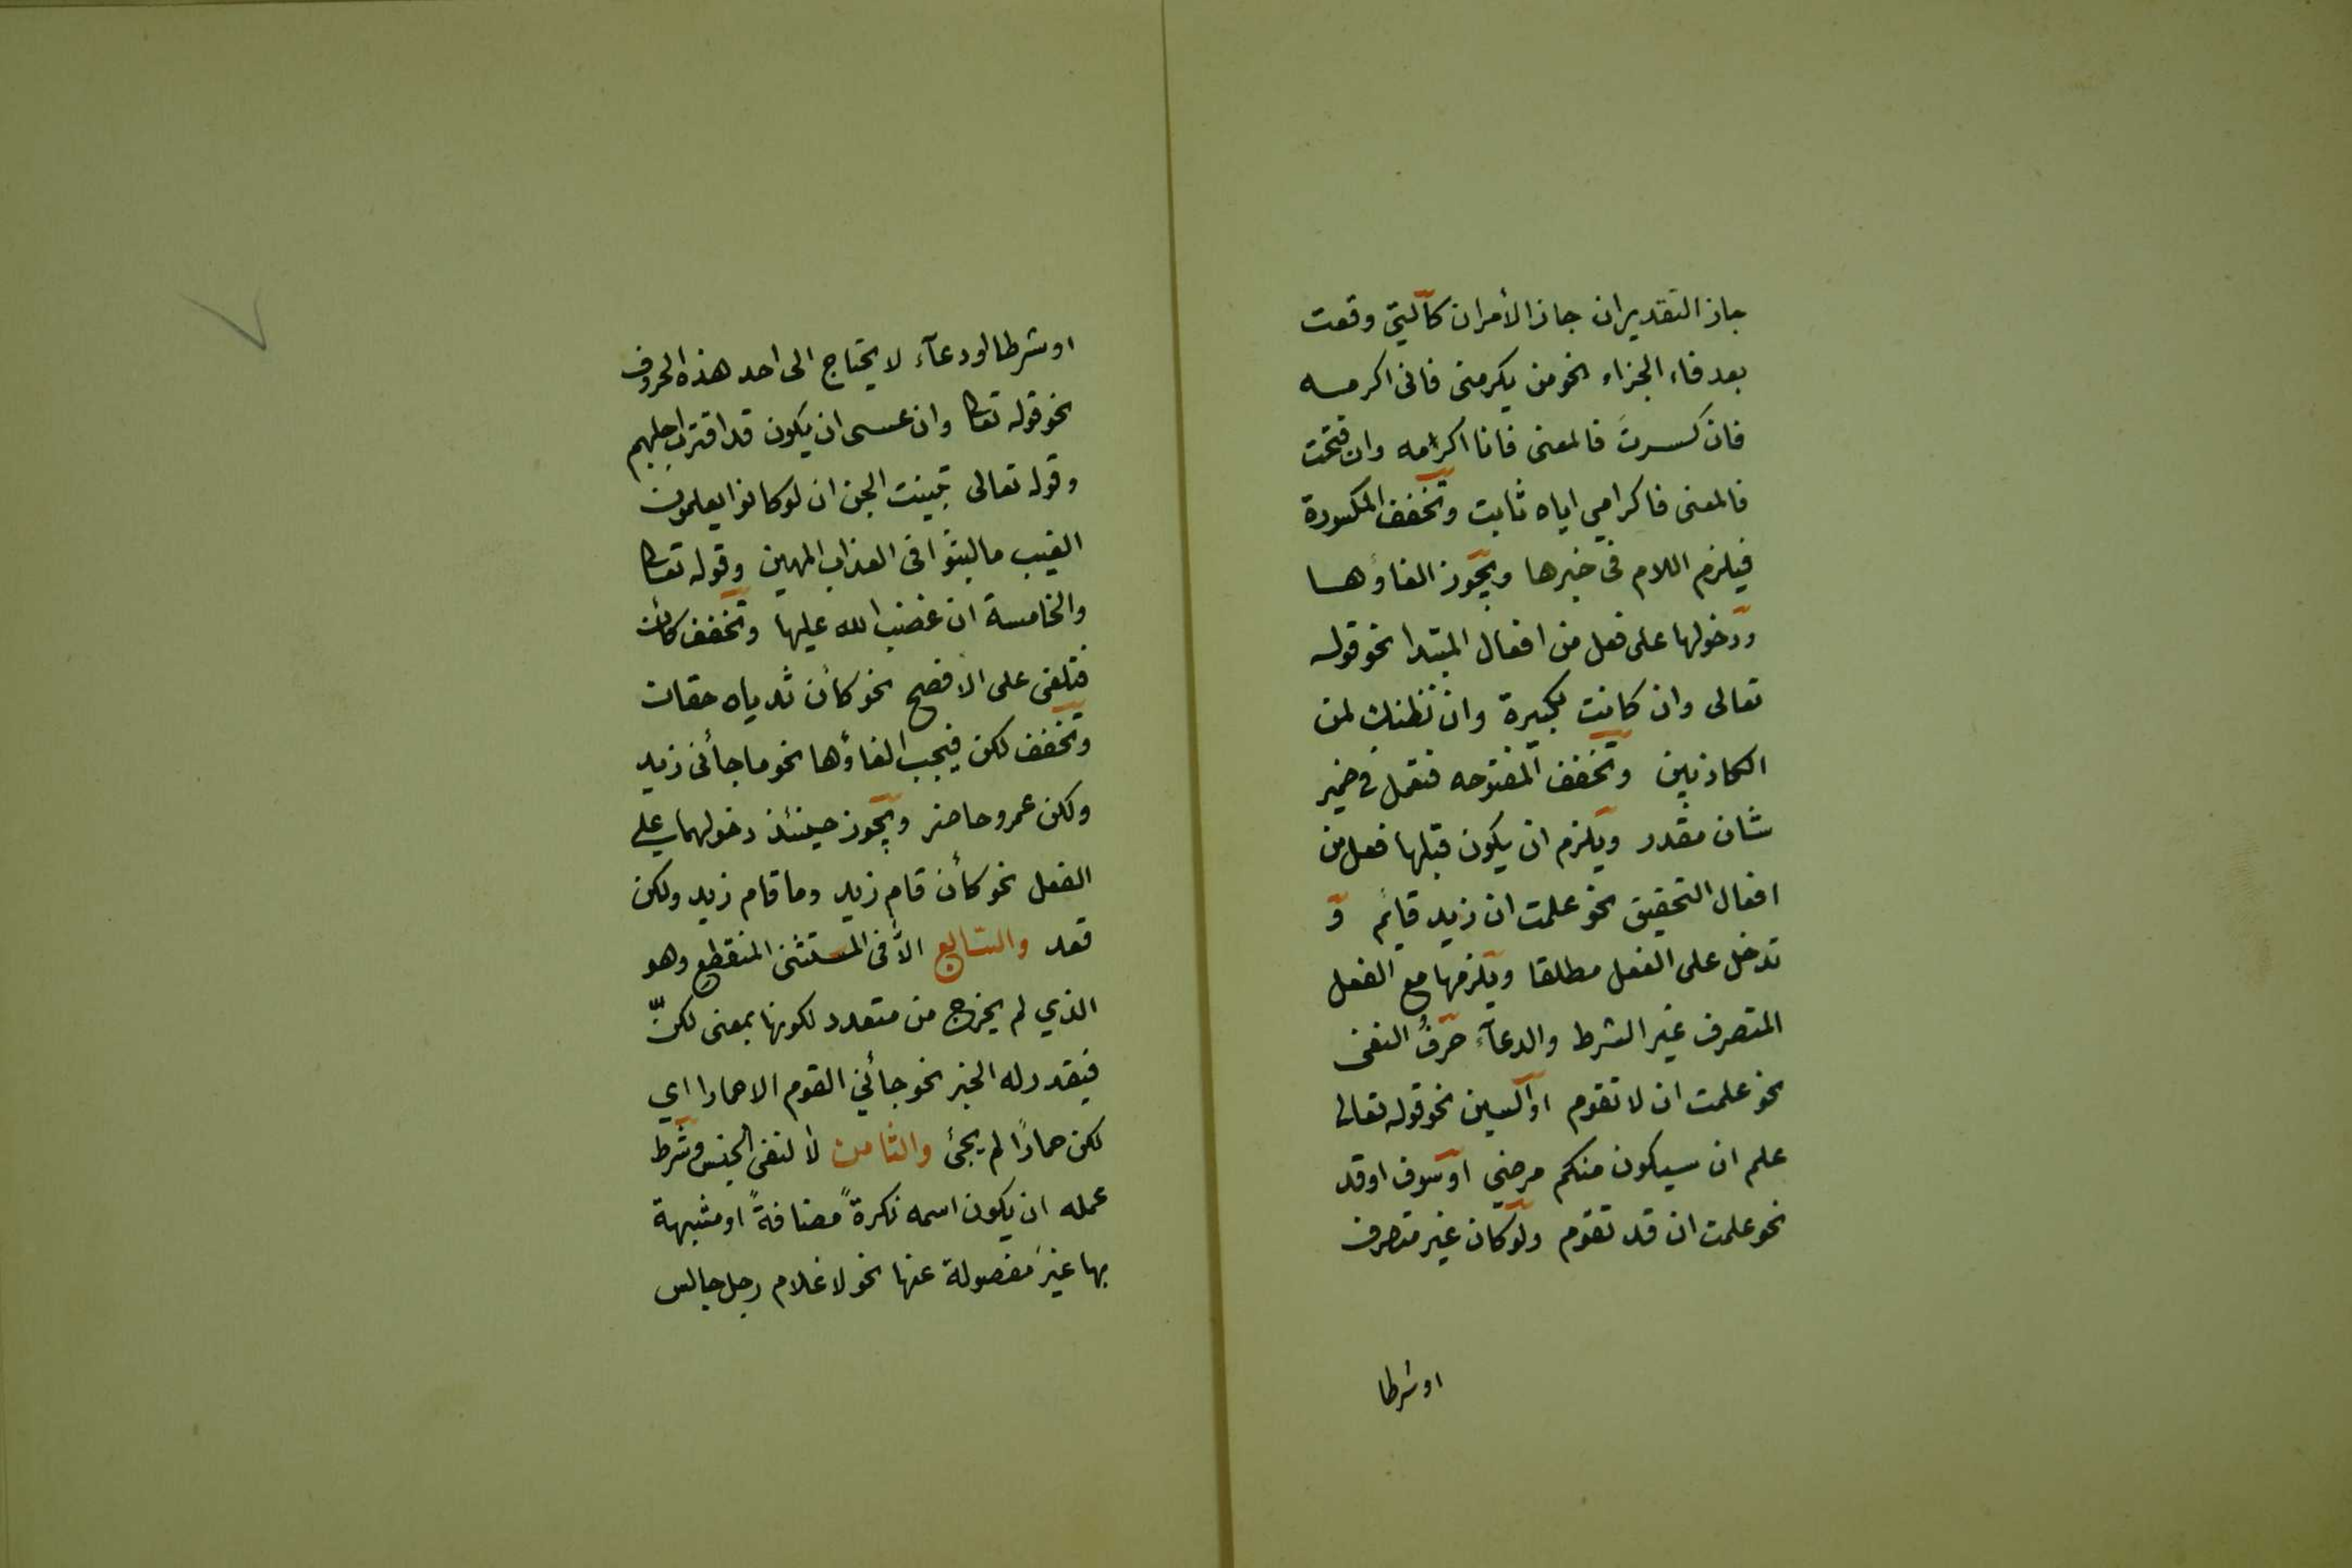 جاز التقديران جاز الأمران كالتي وقعت
بعد فاء الجزاء نحو من يكرمنى فانى اكرمه
فان كسرتَ فالمعنى فانا اكرامه وان فتحت
فالمعنى فاكرامي اياه ثابت وتخفف المكسورة
فيلزم اللام فى خبرها ويجوز الغاؤها
ودخولها على فعل من افعال المبتدا نحو قوله
تعالى وان كانت لكبيرة وان نظنك لمن
الكاذبين وتخفف المفتوحه فتعمل فى ضمير
شان مقدر ويلزم ان يكون قبلها فعل من
افعال التحقيق نحو علمت ان زيد قايم و
تدخل على الفعل مطلقا ويلزمها مع الفعل
المتصرف غير الشرط والدعآء حرفُ النفى
نحو علمت ان لا تقوم او السين نحو قوله تعالى
علم ان سيكون منكم مرضي او سوف او قد
نحو علمت ان قد تقوم ولو كان غير متصرف
او شرطا
او شرطا او دعآء لا يحتاج الى احد هذه الحروف
نحو قوله تعا وان عسى ان يكون قد اقترب اجلهم
وقوله تعالى تبينت الجن ان لو كانوا يعلمون
الغيب ما لبثوا فى العذاب المهين وقوله تعا
والخامسة ان غضب الله عليها وتخفف كأن
فتلغى على الافصح نحو كأن ثدياه حقان
وتخفف لكن فيجب الغاؤها نحو ما جأنى زيد
ولكن عمرو حاضر ويجوز حينئذ دخولهما على
الفعل نحو كأن قام زيد وما قام زيد ولكن
قعد والسّابع الّا فى المستثنى المنقطع وهو
الذي لم يخرج من متعدد لكونها بمعنى لكنّ
فيقدر له الخبر نحو جأني القوم الا حمارا اي
لكن حمارًا لم يجئ والثامن لا لنفى الجنس وشرط
عمله ان يكون اسمه نكرةً مضافةً او مشبهة
بها غيرَ مفصولة عنها نحو لا غلام رجل جالس